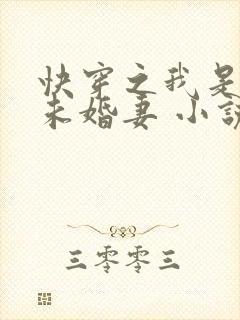 快穿之我是
未婚妻 小说
三零零三